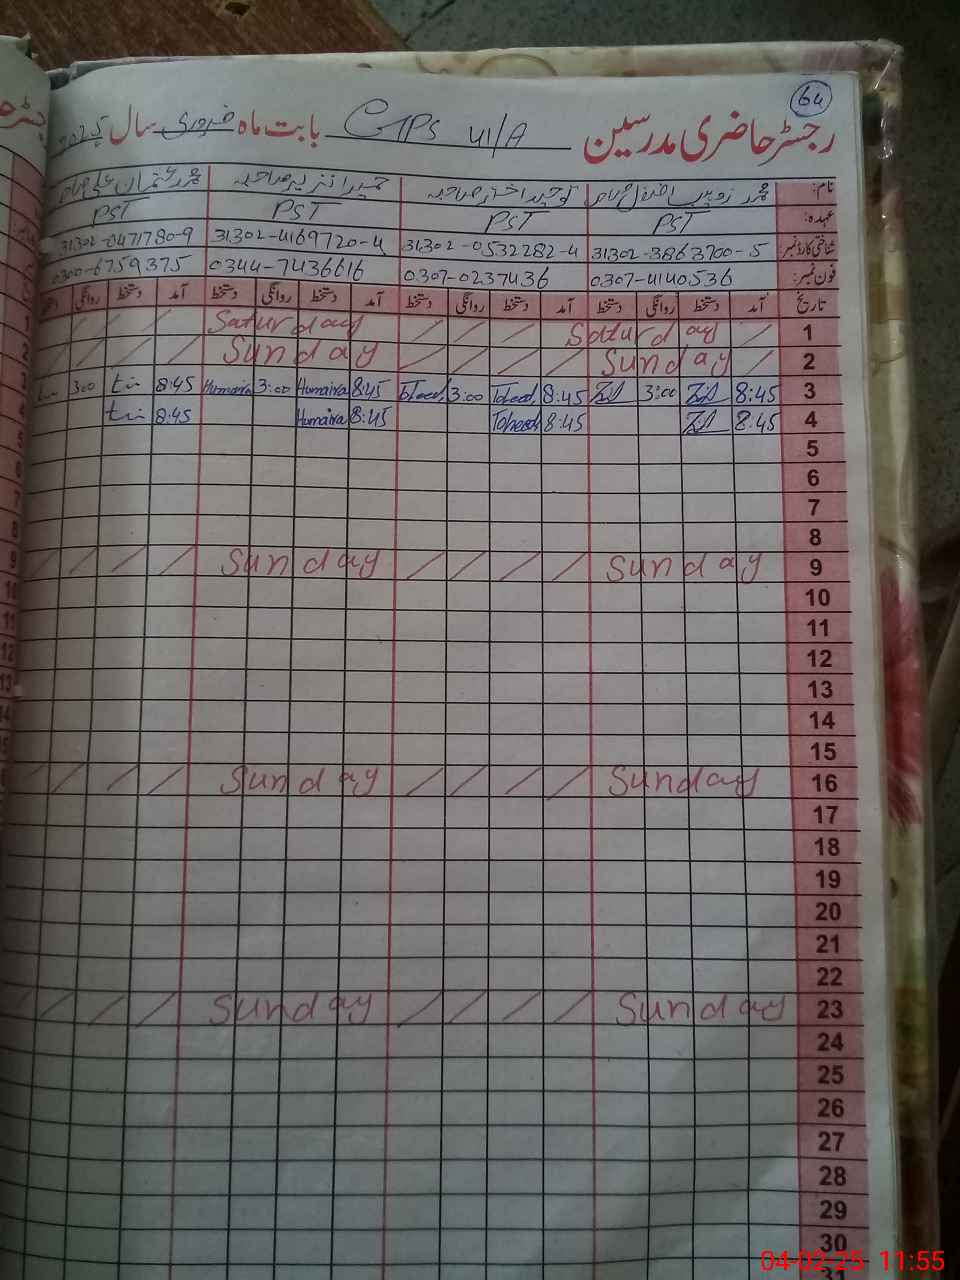 64
رجسٹر حاضری مدرسین GPS 41/A بابت ماہ فروری سال 2025
نام: محمد زوہیب افضل صاحب توحید اختر صاحبہ حمیرا نذیر صاحبہ محمد عثمان علی صاحب
عہدہ: PST PST PST PST
شناختی کارڈ نمبر: 31302-3863700-5 31302-0532282-4 31302-4169720-4 31302-0471780-9
فون نمبر: 0307-4140536 0307-0237436 0344-7436616 0300-6759375
تاریخ آمد دستخط روانگی دستخط آمد دستخط روانگی دستخط آمد دستخط روانگی دستخط آمد دستخط روانگی
1 Saturday Saturday
2 Sunday Sunday
3 8:45 3:00 8:45 Toheed 3:00 Toheed 8:45 Humaira 3:00 Humaira 8:45 3:00
4 8:45 8:45 Toheed 8:45 Humaira 8:45
5
6
7
8
9 Sunday Sunday
10
11
12
13
14
15
16 Sunday Sunday
17
18
19
20
21
22
23 Sunday Sunday
24
25
26
27
28
29
30
31
04-02-25 11:55